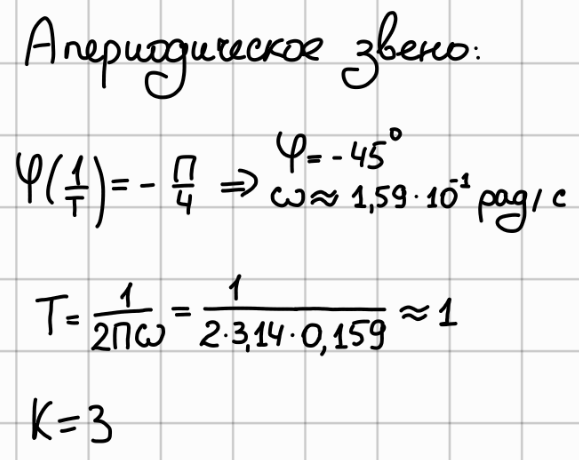 Апериодическое звено:
φ(1/T) = - π/4 ⇒ φ = - 45°
ω ≈ 1,59 · 10⁻¹ рад/с
T = 1/2πω = 1/2·3,14·0,159 ≈ 1
K = 3